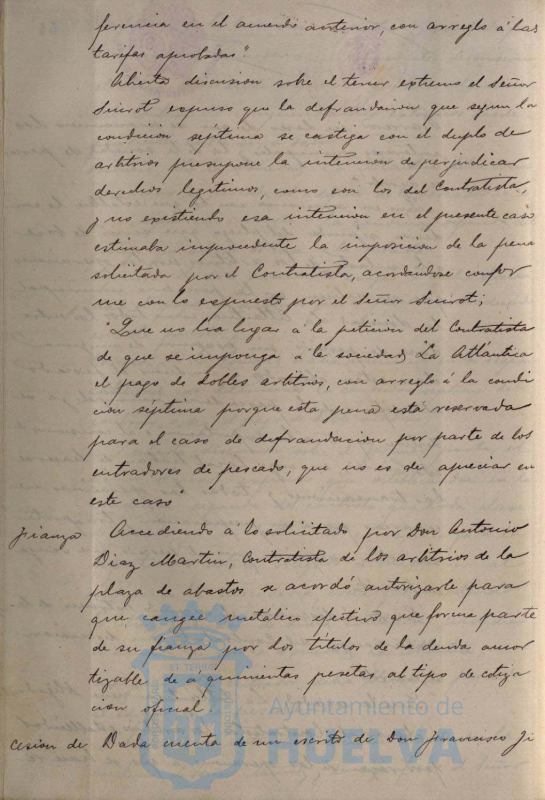 ferencia en el acuerdo anterior, con arreglo á las
tarifas aprobadas".
Abierta discusion sobre el tercer extremo el Señor
Suirot expuso que la defraudacion que segun la
condición séptima se castiga con el duplo de
arbitrios presupone la intencion de perjudicar
derechos legítimos, como son los del Contratista,
y no existiendo esa intencion en el presente caso
estimaba improcedente la imposicion de la pena
solicitada por el Contratista, acordándose confor
me con lo expuesto por el Señor Suirot;
"Que no ha lugar á la peticion del Contratista
de que se imponga á la sociedad La Atlántica
el pago de dobles arbitrios, con arreglo á la condi
cion séptima porque esta pena está reservada
para el caso de defraudacion por parte de los
entradores de pescado, que no es de apreciar en
este caso"
Fianza Accediendo á lo solicitado por Don Antonio
Diaz Martin, Contratista de los arbitrios de la
plaza de abastos se acordó autorizarle para
que cangee metálico efectivo que forma parte
de su fianza por dos títulos de la deuda amor
tizable de á quinientas pesetas al tipo de cotiza
cion oficial.
Cesion de Dada cuenta de un escrito de Don Francisco Ji
Ayuntamiento de
HUELVA